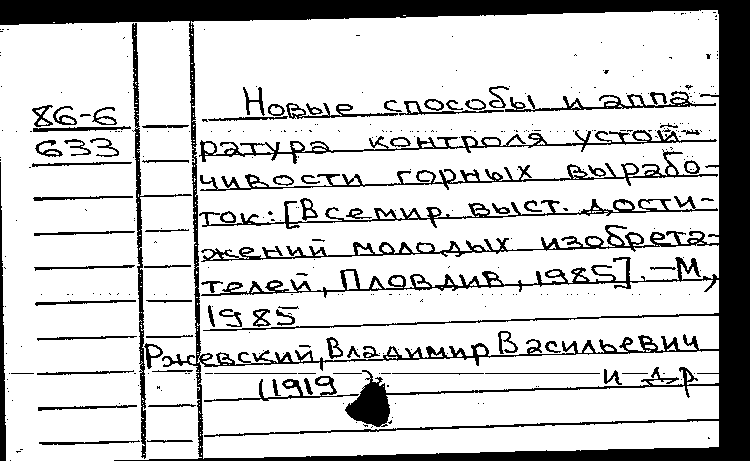 86-6
633
Новые способы и аппа-
ратура контроля устой-
чивости горных вырабо-
ток: [Всемир. выст. дости-
жений молодых изобрета-
телей, Пловдив, 1985]. – М.,
1985
Ржевский, Владимир Васильевич
(1919 ) и др